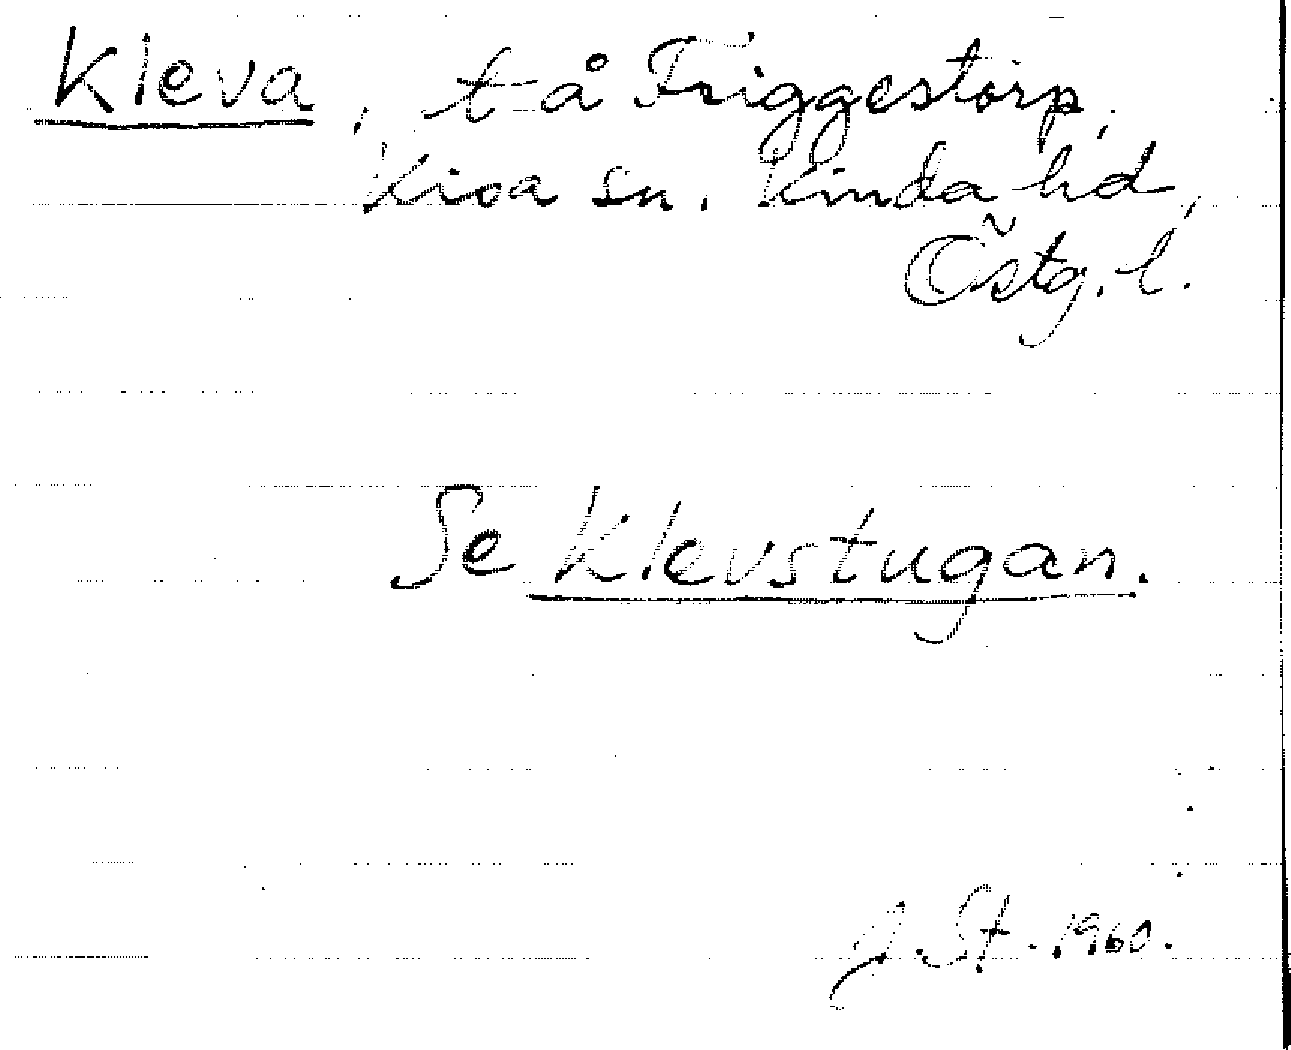 Kleva, t å Friggestorp,
Kisa sn. Kinda hd,
Östg. l.
Se Klevstugan.
J. St. 1960.